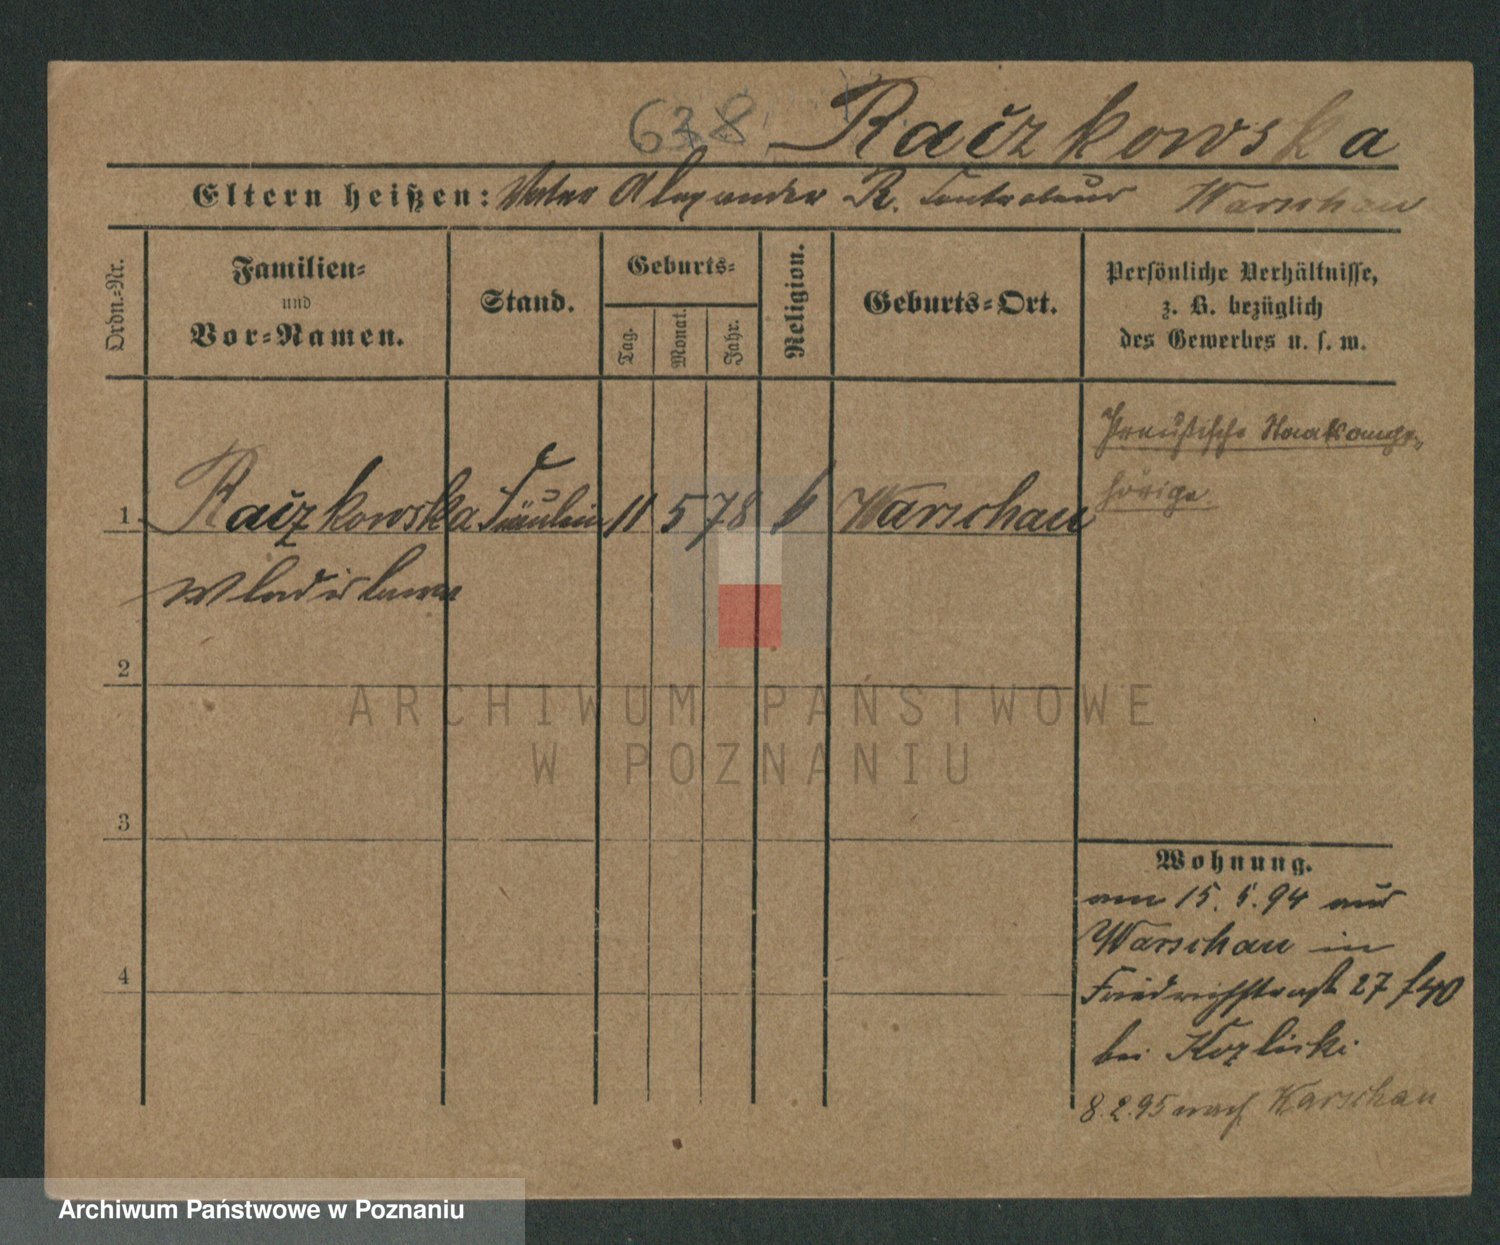 638. Raczkowska
Eltern heißen: Vater Alexander R. Controleur Warschau
Ordn.-Nr.
Familien-
und
Vor-Namen.
Stand.
Geburts-
Tag.
Monat.
Jahr.
Religion.
Geburts-Ort.
Persönliche Verhältnisse,
z. B. bezüglich
des Gewerbes u. s. w.
Preußische Staatsange-
hörige
1 Raczkowska Fräulein 11 5 78 k Warschau
Wladislawa
2
3
4
Wohnung.
am 15. 5. 94 aus
Warschau in
Friedrichstraße 27
bei Kozlicki
8.2.95 nach Warschau
ARCHIWUM PAŃSTWOWE
W POZNANIU
Archiwum Państwowe w Poznaniu